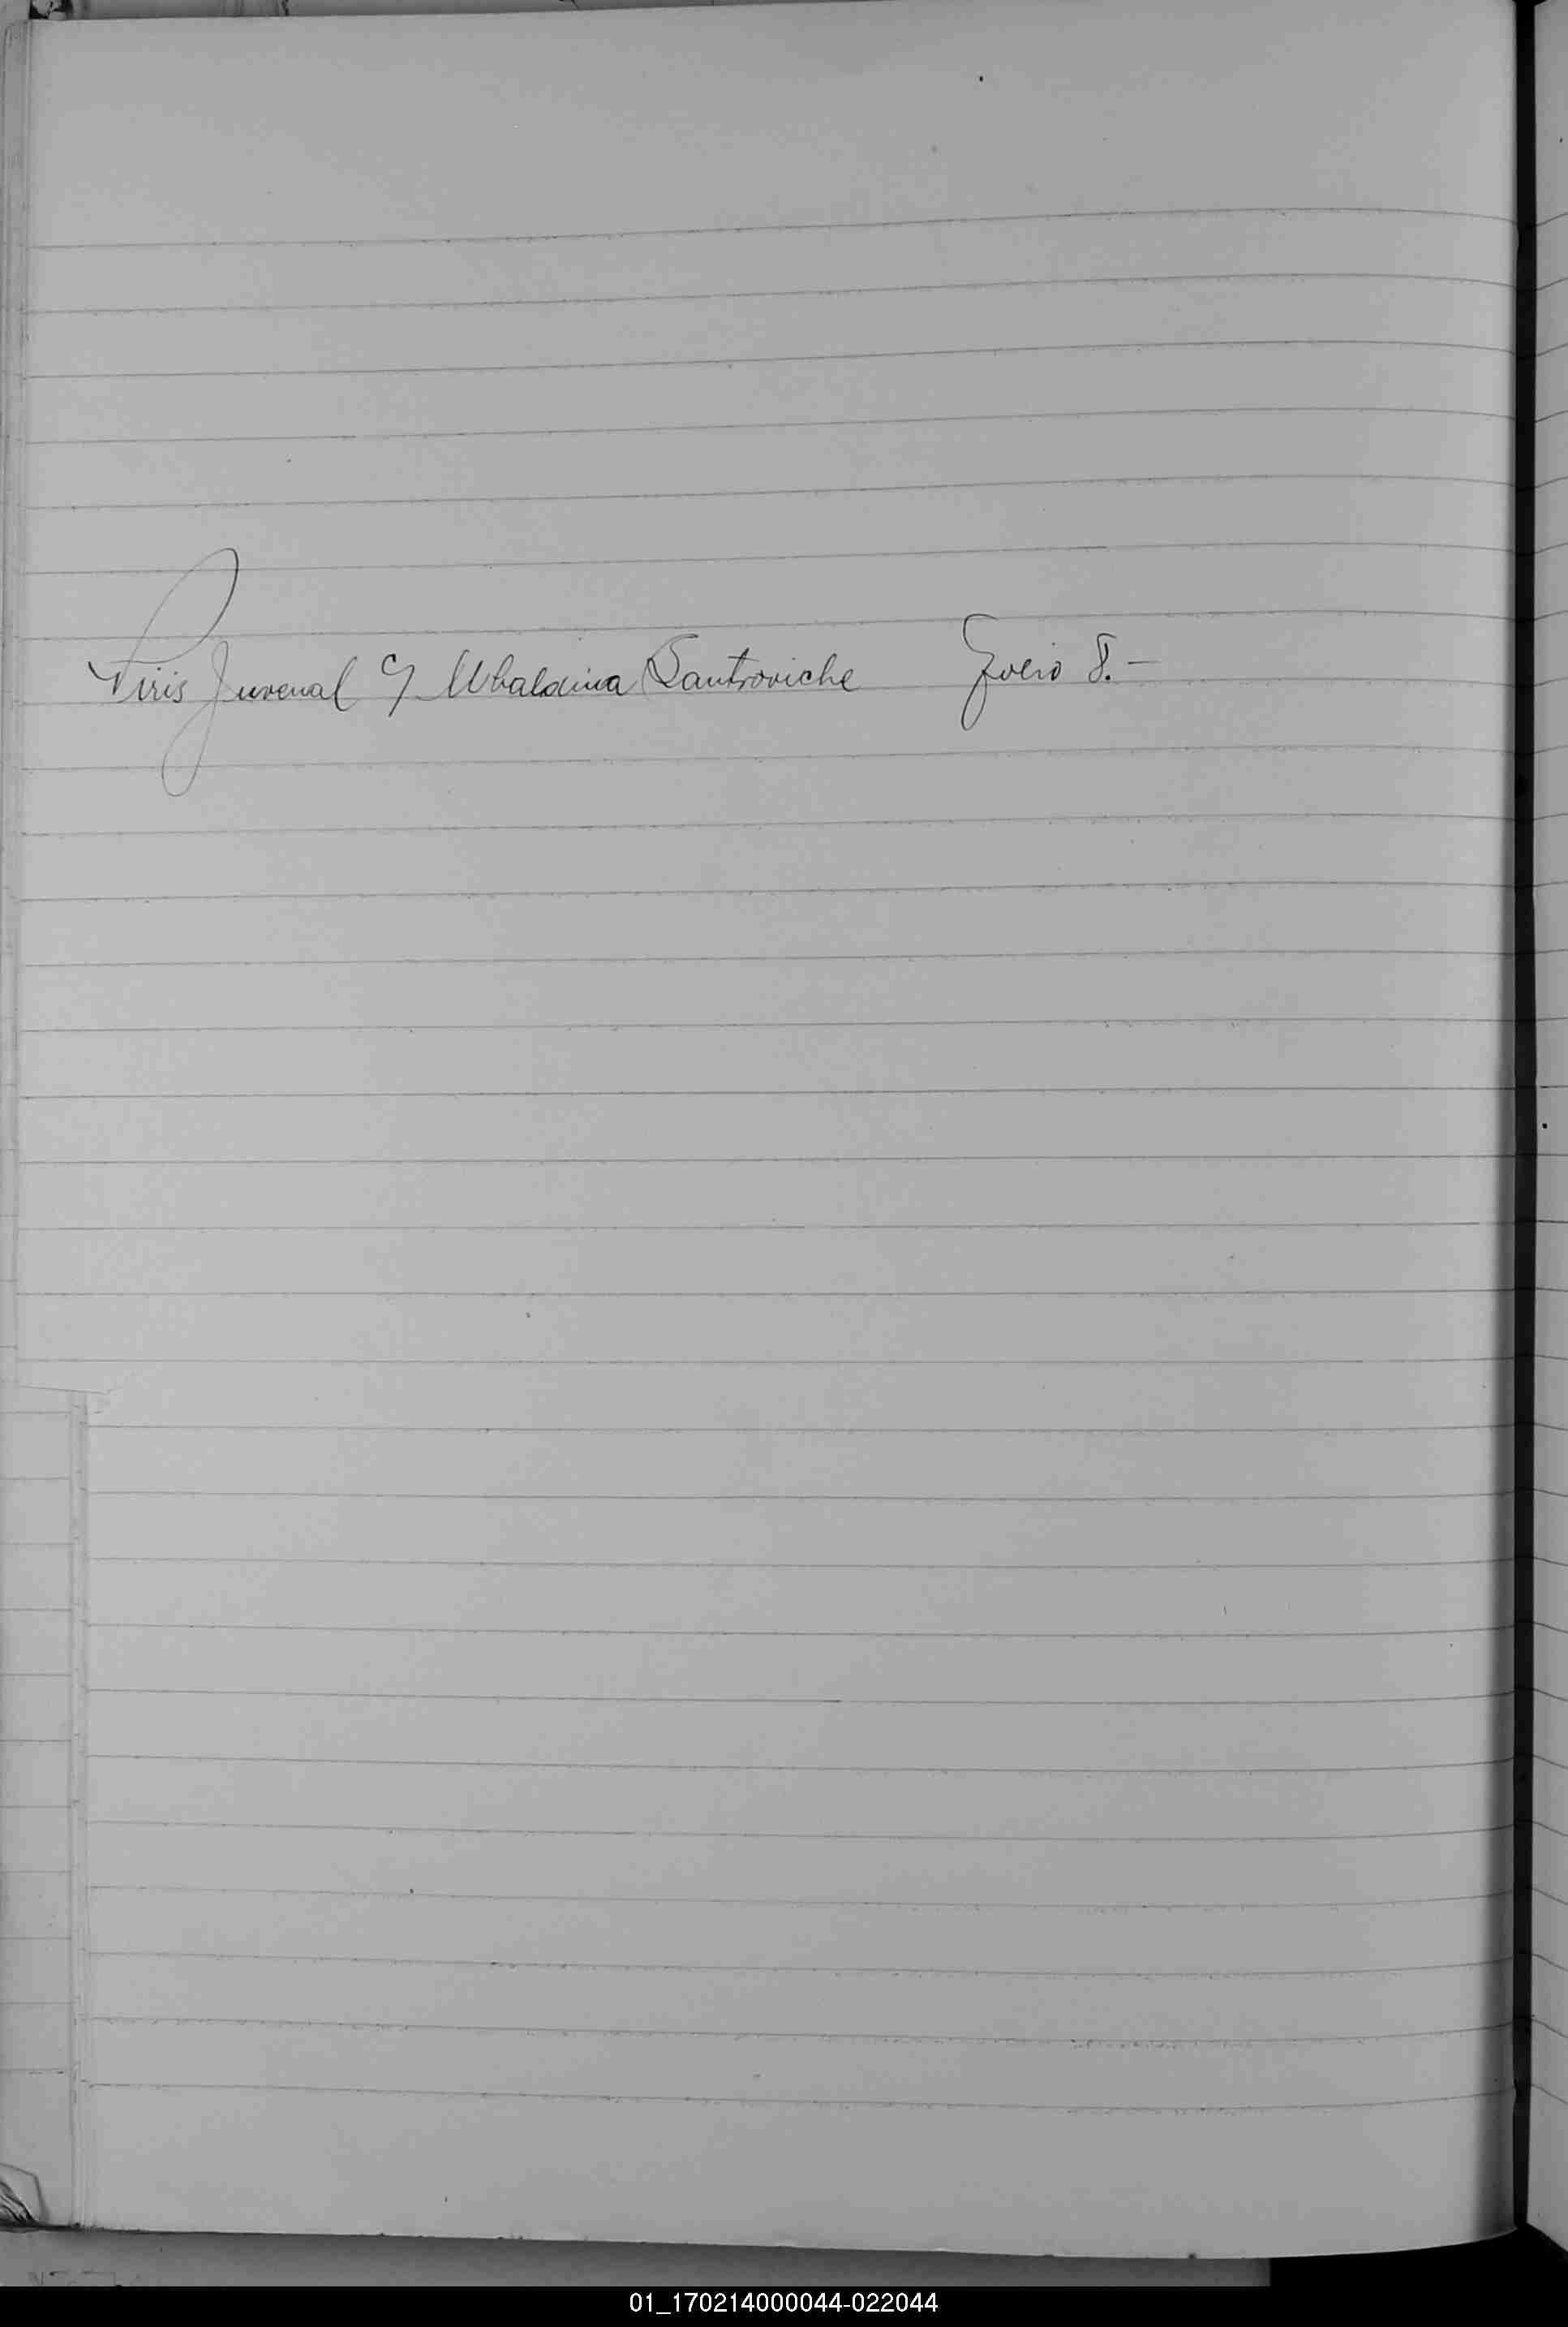 Piris Juvenal y Ubaldina Santroviche Folio 8.-
01_170214000044-022044